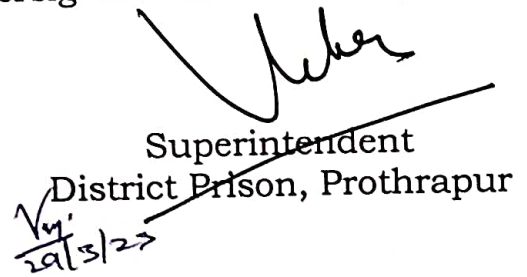 Superintendent
District Prison, Prothrapur
29/3/23